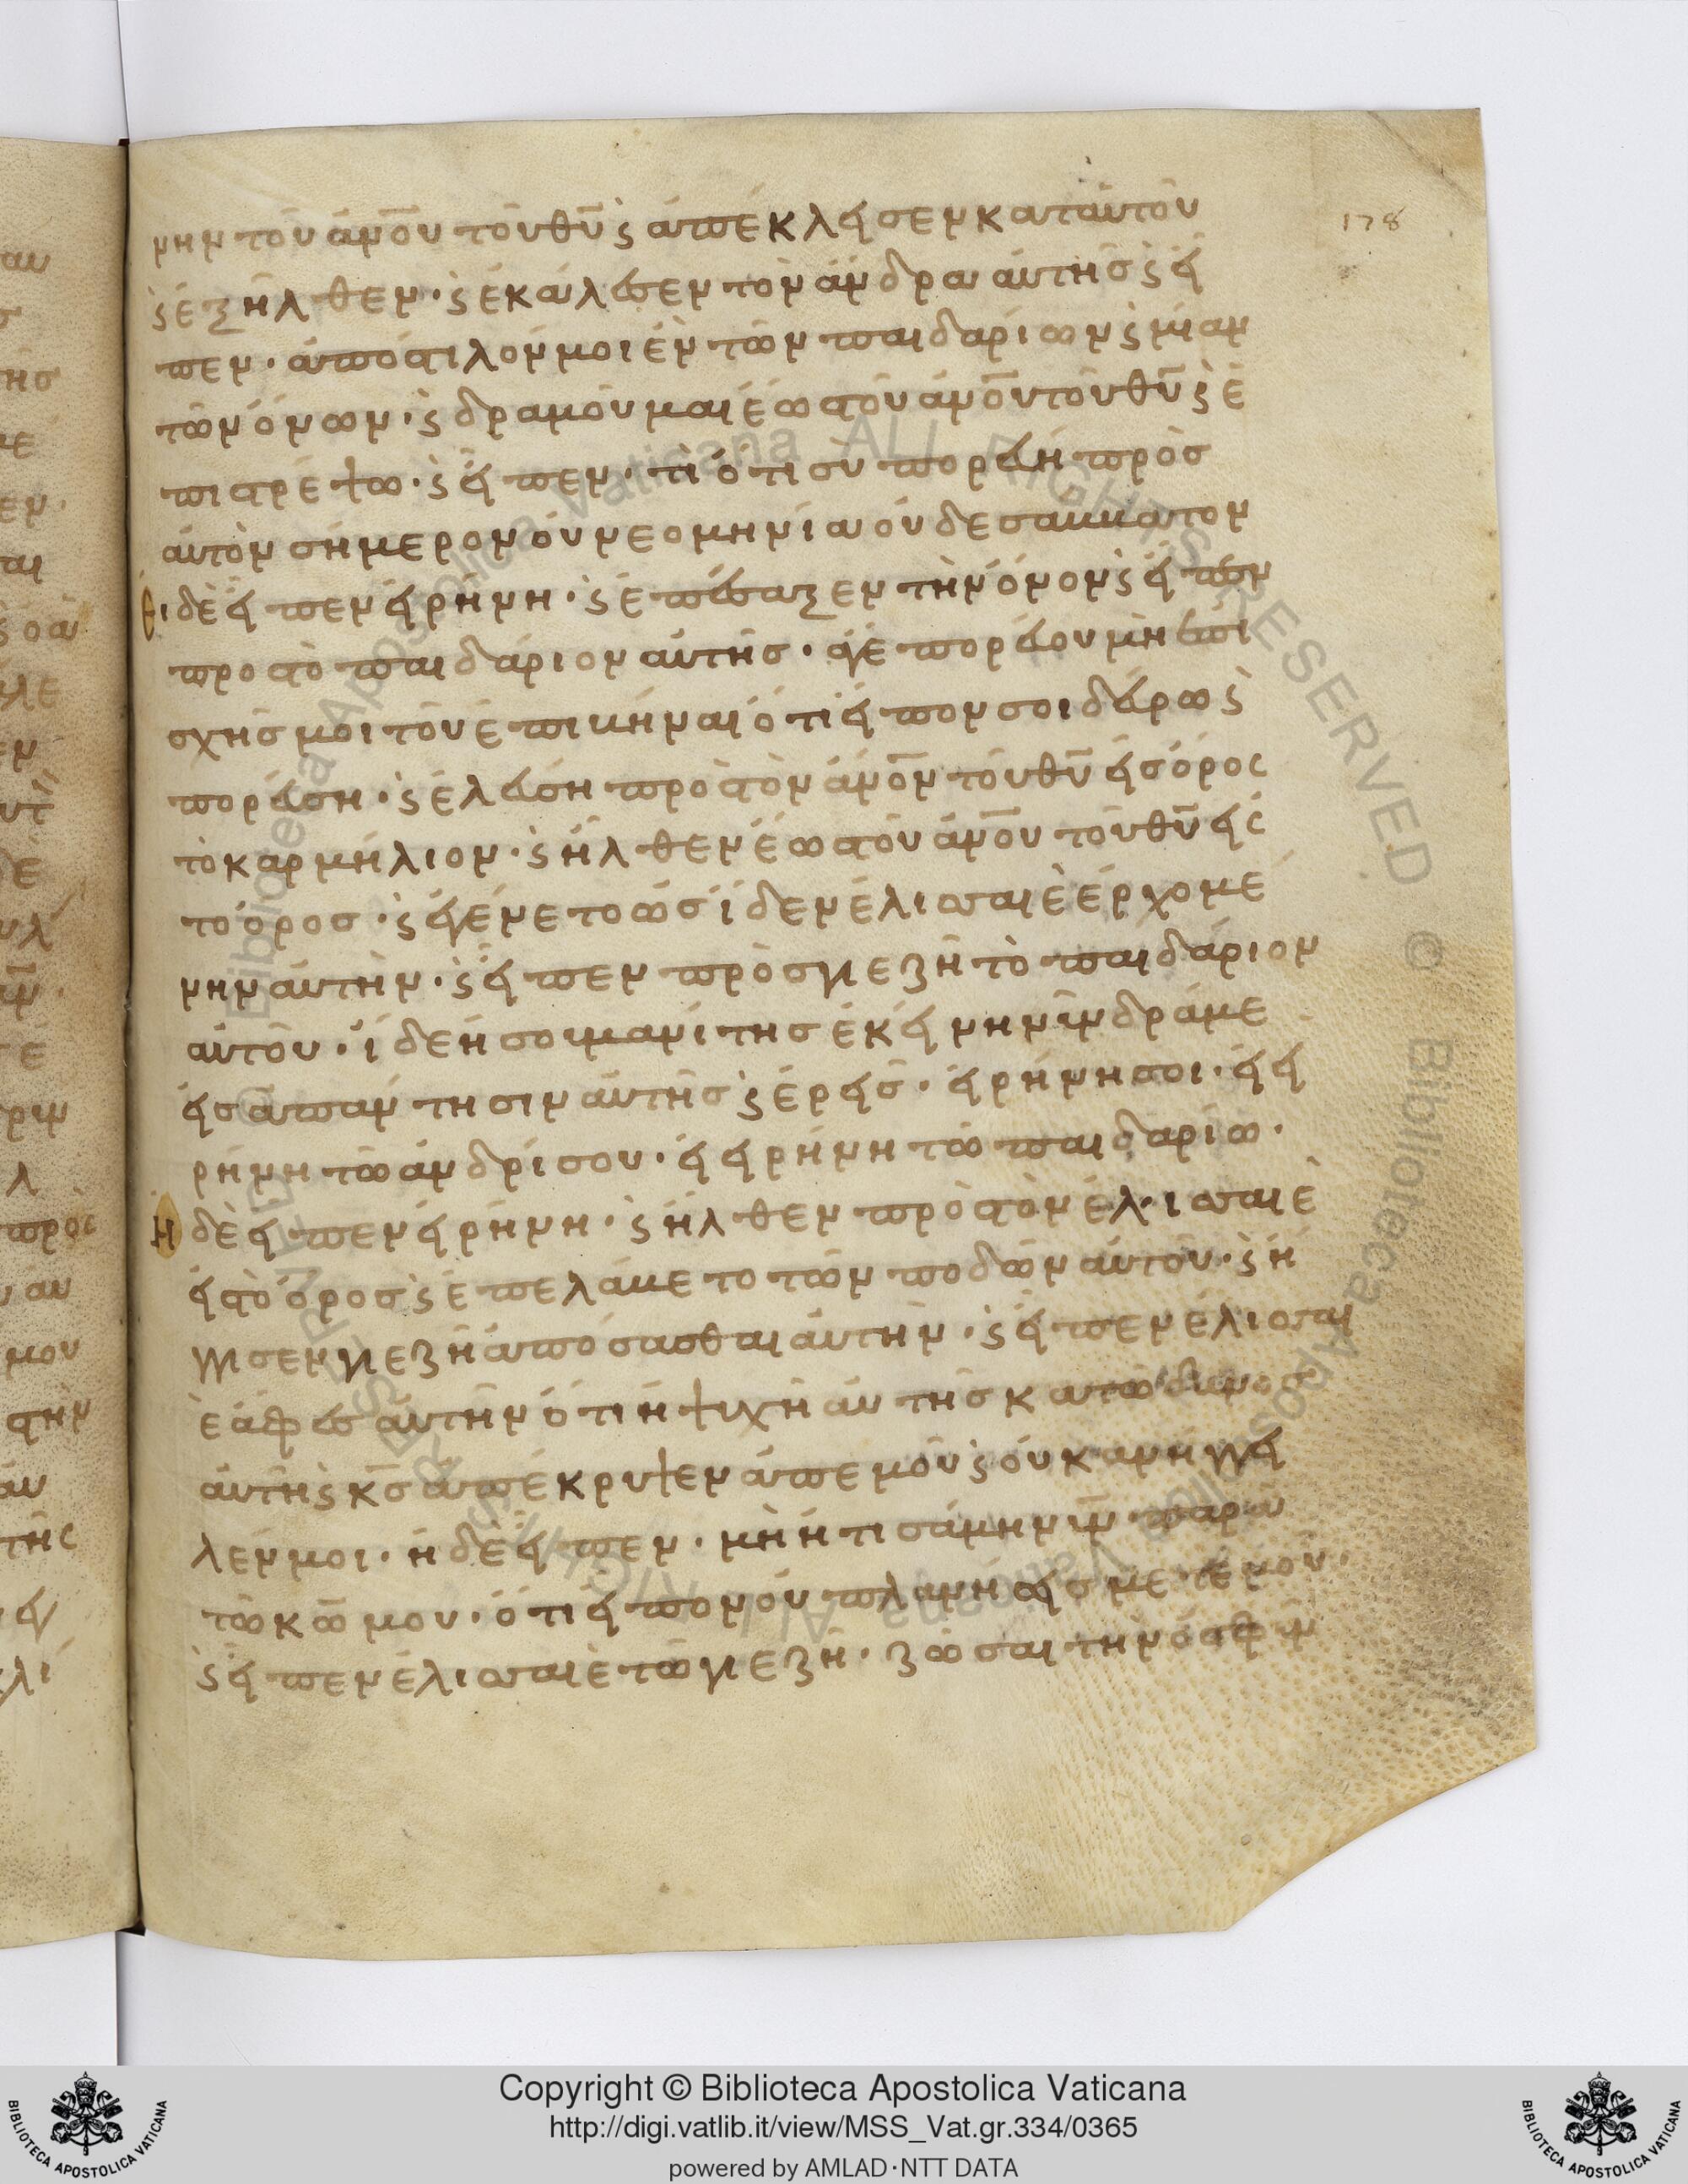 178
νην τοῦ ἀνο̅υ τοῦ θυ̅ ϛ ἀπέκλεισεν κατ' αὐτοῦ
ϛ ἐξῆλθεν · ϛ ἐκάλεσεν τὸν ἄνδρα αὐτῆς ϛ εἶ
πεν · ἀπόστιλον μοι ἓν τῶν παιδαρίων ϛ μίαν
τῶν ὄνων · ϛ δραμοῦμαι ἕως τοῦ ἀνο̅υ τοῦ θυ̅ ϛ ἐ
πιστρέψω · ϛ εἶπεν · τί ὅτι σὺ πορεύη πρὸς
αὐτὸν σήμερον οὐ νεομηνία οὐδὲ σάββατον
ἡ δὲ εἶπεν εἰρήνη · ϛ ἐπέσαξεν τὴν ὄνον ϛ εἶπεν
πρὸς τὸ παιδάριον αὐτῆς · ἄγε πορεύου μὴ ἐπί
σχης μοι τοῦ ἐπιβῆναι ὅτι εἴπον σοι δεῦρω ϛ
πορεύση · ϛ ἐλεύση πρὸς τὸν ἀνο̅ν τοῦ θυ̅ εἰς ὄρος
τὸ καρμήλιον · ϛ ἦλθεν ἕως τοῦ ἀνο̅υ τοῦ θυ̅ εἰς
τὸ ὄρος · ϛ ἐγένετο ὡς ἴδεν ἐλισσαιὲ ἐρχομέ
νην αὐτὴν · ϛ εἶπεν πρὸς γιεζῆ τὸ παιδάριον
αὐτοῦ · ἰδὲ ἡ σουμανίτης ἐκείνη νῦν δράμε
εἰς ἀπάντησιν αὐτῆς ϛ ἐρεῖς · εἰρήνη σοι · εἰ εἰ
ρήνη τῷ ἀνδρί σου · εἰ εἰρήνη τῷ παιδαρίω ·
ἡ δὲ εἶπεν εἰρήνη · ϛ ἦλθεν πρὸς τὸν ἐλισσαιὲ
εἰς τὸ ὄρος ϛ ἐπελάβετο τῶν ποδῶν αὐτοῦ · ϛ ἤ
γγισεν γιεζῆ ἀπόσασθαι αὐτήν · ϛ εἶπεν ἐλισσαι
ὲ ἄφες αὐτὴν ὅτι ἡ ψυχὴ αὐτῆς κατώδυνος
αὐτῆ ϛ κς̅ ἀπέκρυψεν ἀπ' ἐμοῦ ϛ οὐκ ἀνήγγει
λέν μοι · ἡ δὲ εἶπεν · μὴ ἠτισάμην υν̅ παρὰ
τῶ κω̅ μου · ὅτι εἶπον οὐ πλανήσεις με
ϛ εἶπεν ἐλισσαιὲ τῷ γιεζῆ · ζῶσαι τὴν ὀσφῦν
Copyright © Biblioteca Apostolica Vaticana
http://digi.vatlib.it/view/MSS_Vat.gr.334/0365
powered by AMLAD·NTT DATA
BIBLIOTECA APOSTOLICA VATICANA
BIBLIOTECA APOSTOLICA VATICANA